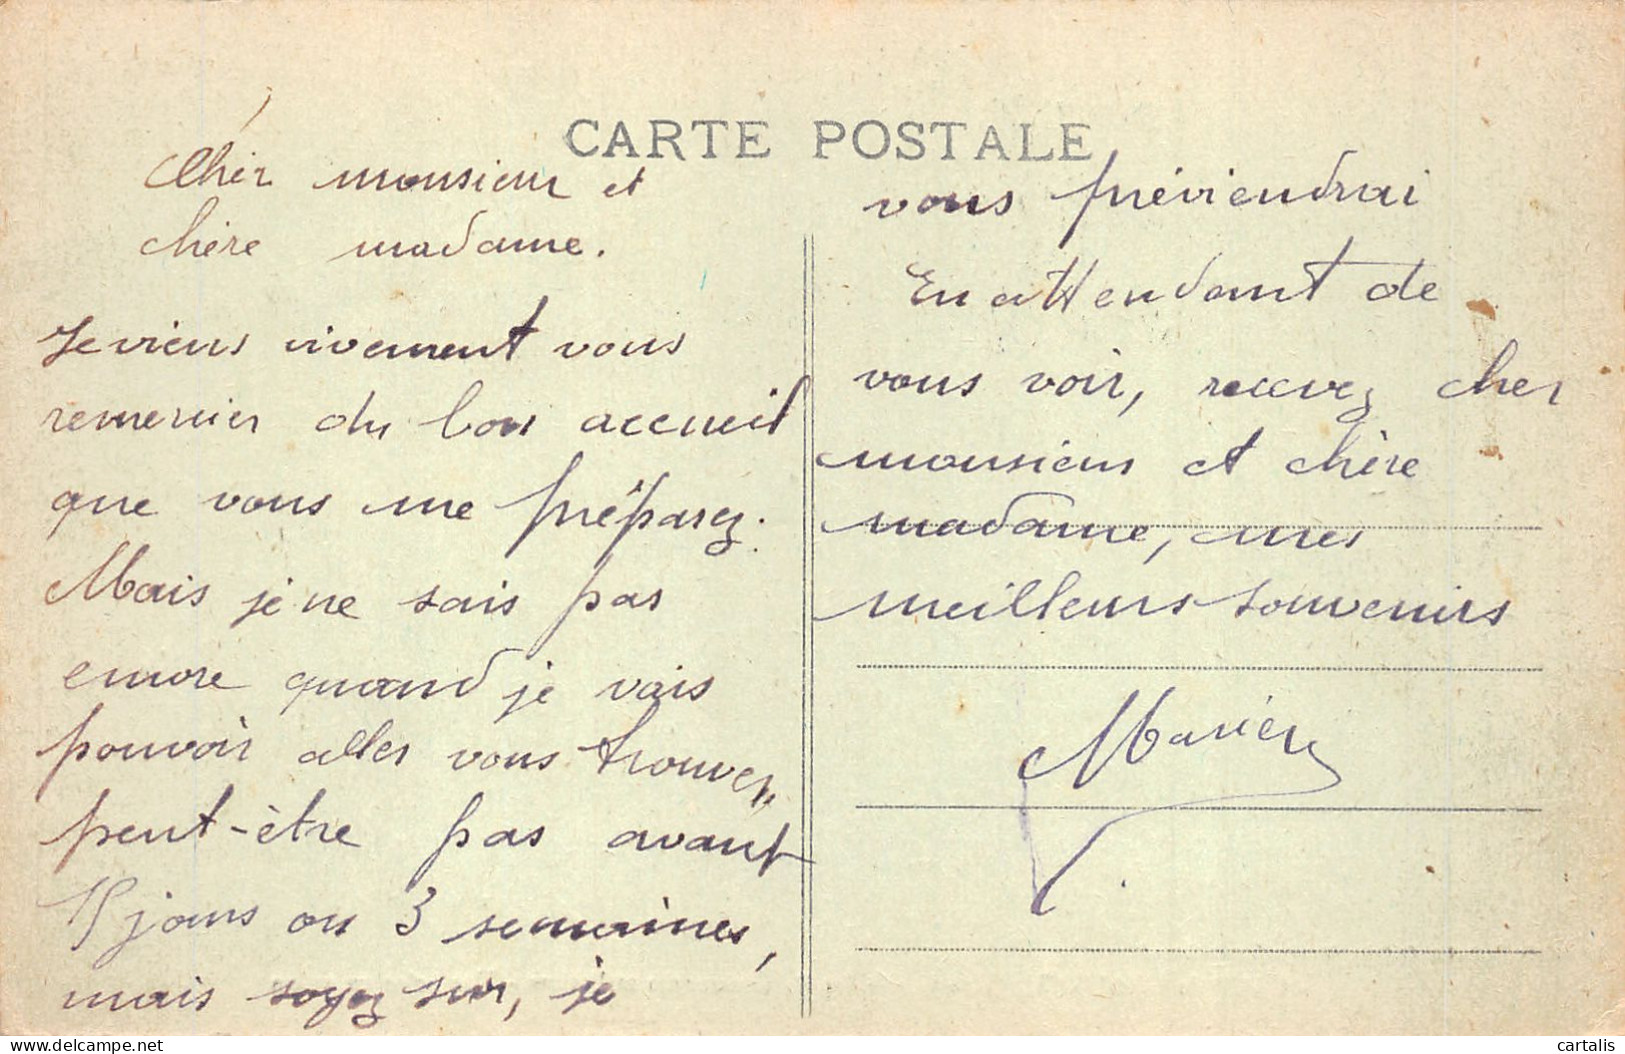 CARTE POSTALE
Cher monsieur et
chère madame.
Je viens vivement vous
remercier du bon accueil
que vous me préparez.
Mais je ne sais pas
encore quand je vais
pouvoir aller vous trouver,
peut-être pas avant
15 jours ou 3 semaines,
mais soyez sur, je
vous préviendrai
En attendant de
vous voir, recevez cher
monsieur et chère
madame, mes
meilleurs souvenirs
cartalis
delcampe.net